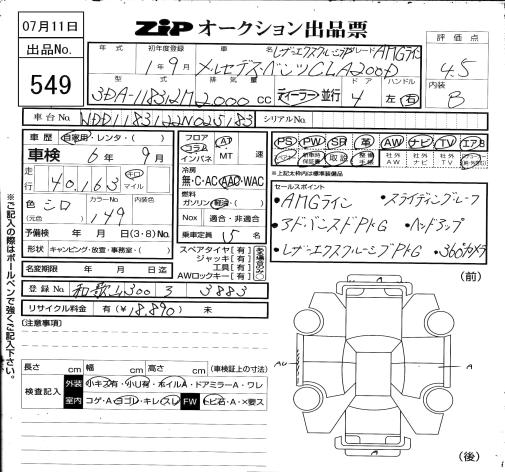 07月11日
ZiP オークション出品票
出品No.
549
年式 初年度登録 車名 グレード
レザーエクスクルーシブP AMGライン
1年9月 メルセデスベンツCLA200D
型式 排気量 ドア ハンドル
3DA-118312M 2000 cc ディーラー・並行 4 左・右
評価点
4.5
内装
B
車台No. WDD1183122N025183 シリアルNo.
車歴 自家用・レンタ・( )
車検 6年9月
走行 40,163 キロ マイル
色 シロ カラーNo. 149 内装色
(元色)
予備検 年 月 日(3・8)No.
形状 キャンピング・放宣・事務室・( )
名変期限 年 月 日迄
フロア コラム インパネ AT MT 速
冷房
無・C・AC・AAC・WAC
燃料
ガソリン・軽油・( )
Nox 適合・非適合
乗車定員 5 名
スペアタイヤ【有】
ジャッキ【有】
工具【有】
AWロックキー【有】
PS PW SR 革 AW ナビ TV エアB
取説 整備手帳 社外AW 社外ナビ 社外TV
※上記太枠内は標準装備品
セールスポイント
・AMGライン ・スライディングルーフ
・アドバンスドPKG ・ヘッドアップ
・レザーエクスクルーシブPKG ・360°カメラ
登録No. 和歌山300 ヌ 3883
リサイクル料金 有(¥18,890) 未
【注意事項】
(前)
長さ cm 幅 cm 高さ cm (車検証上の寸法)
検査記入 外装 小キズ有・小U有・ホイルA・ドアミラーA・ワレ
室内 コゲ・A・ヨゴレ・キレ・スレ FW トビ石・A・×要ス
AU
A
(後)
※ご記入の際はボールペンで強くご記入下さい。